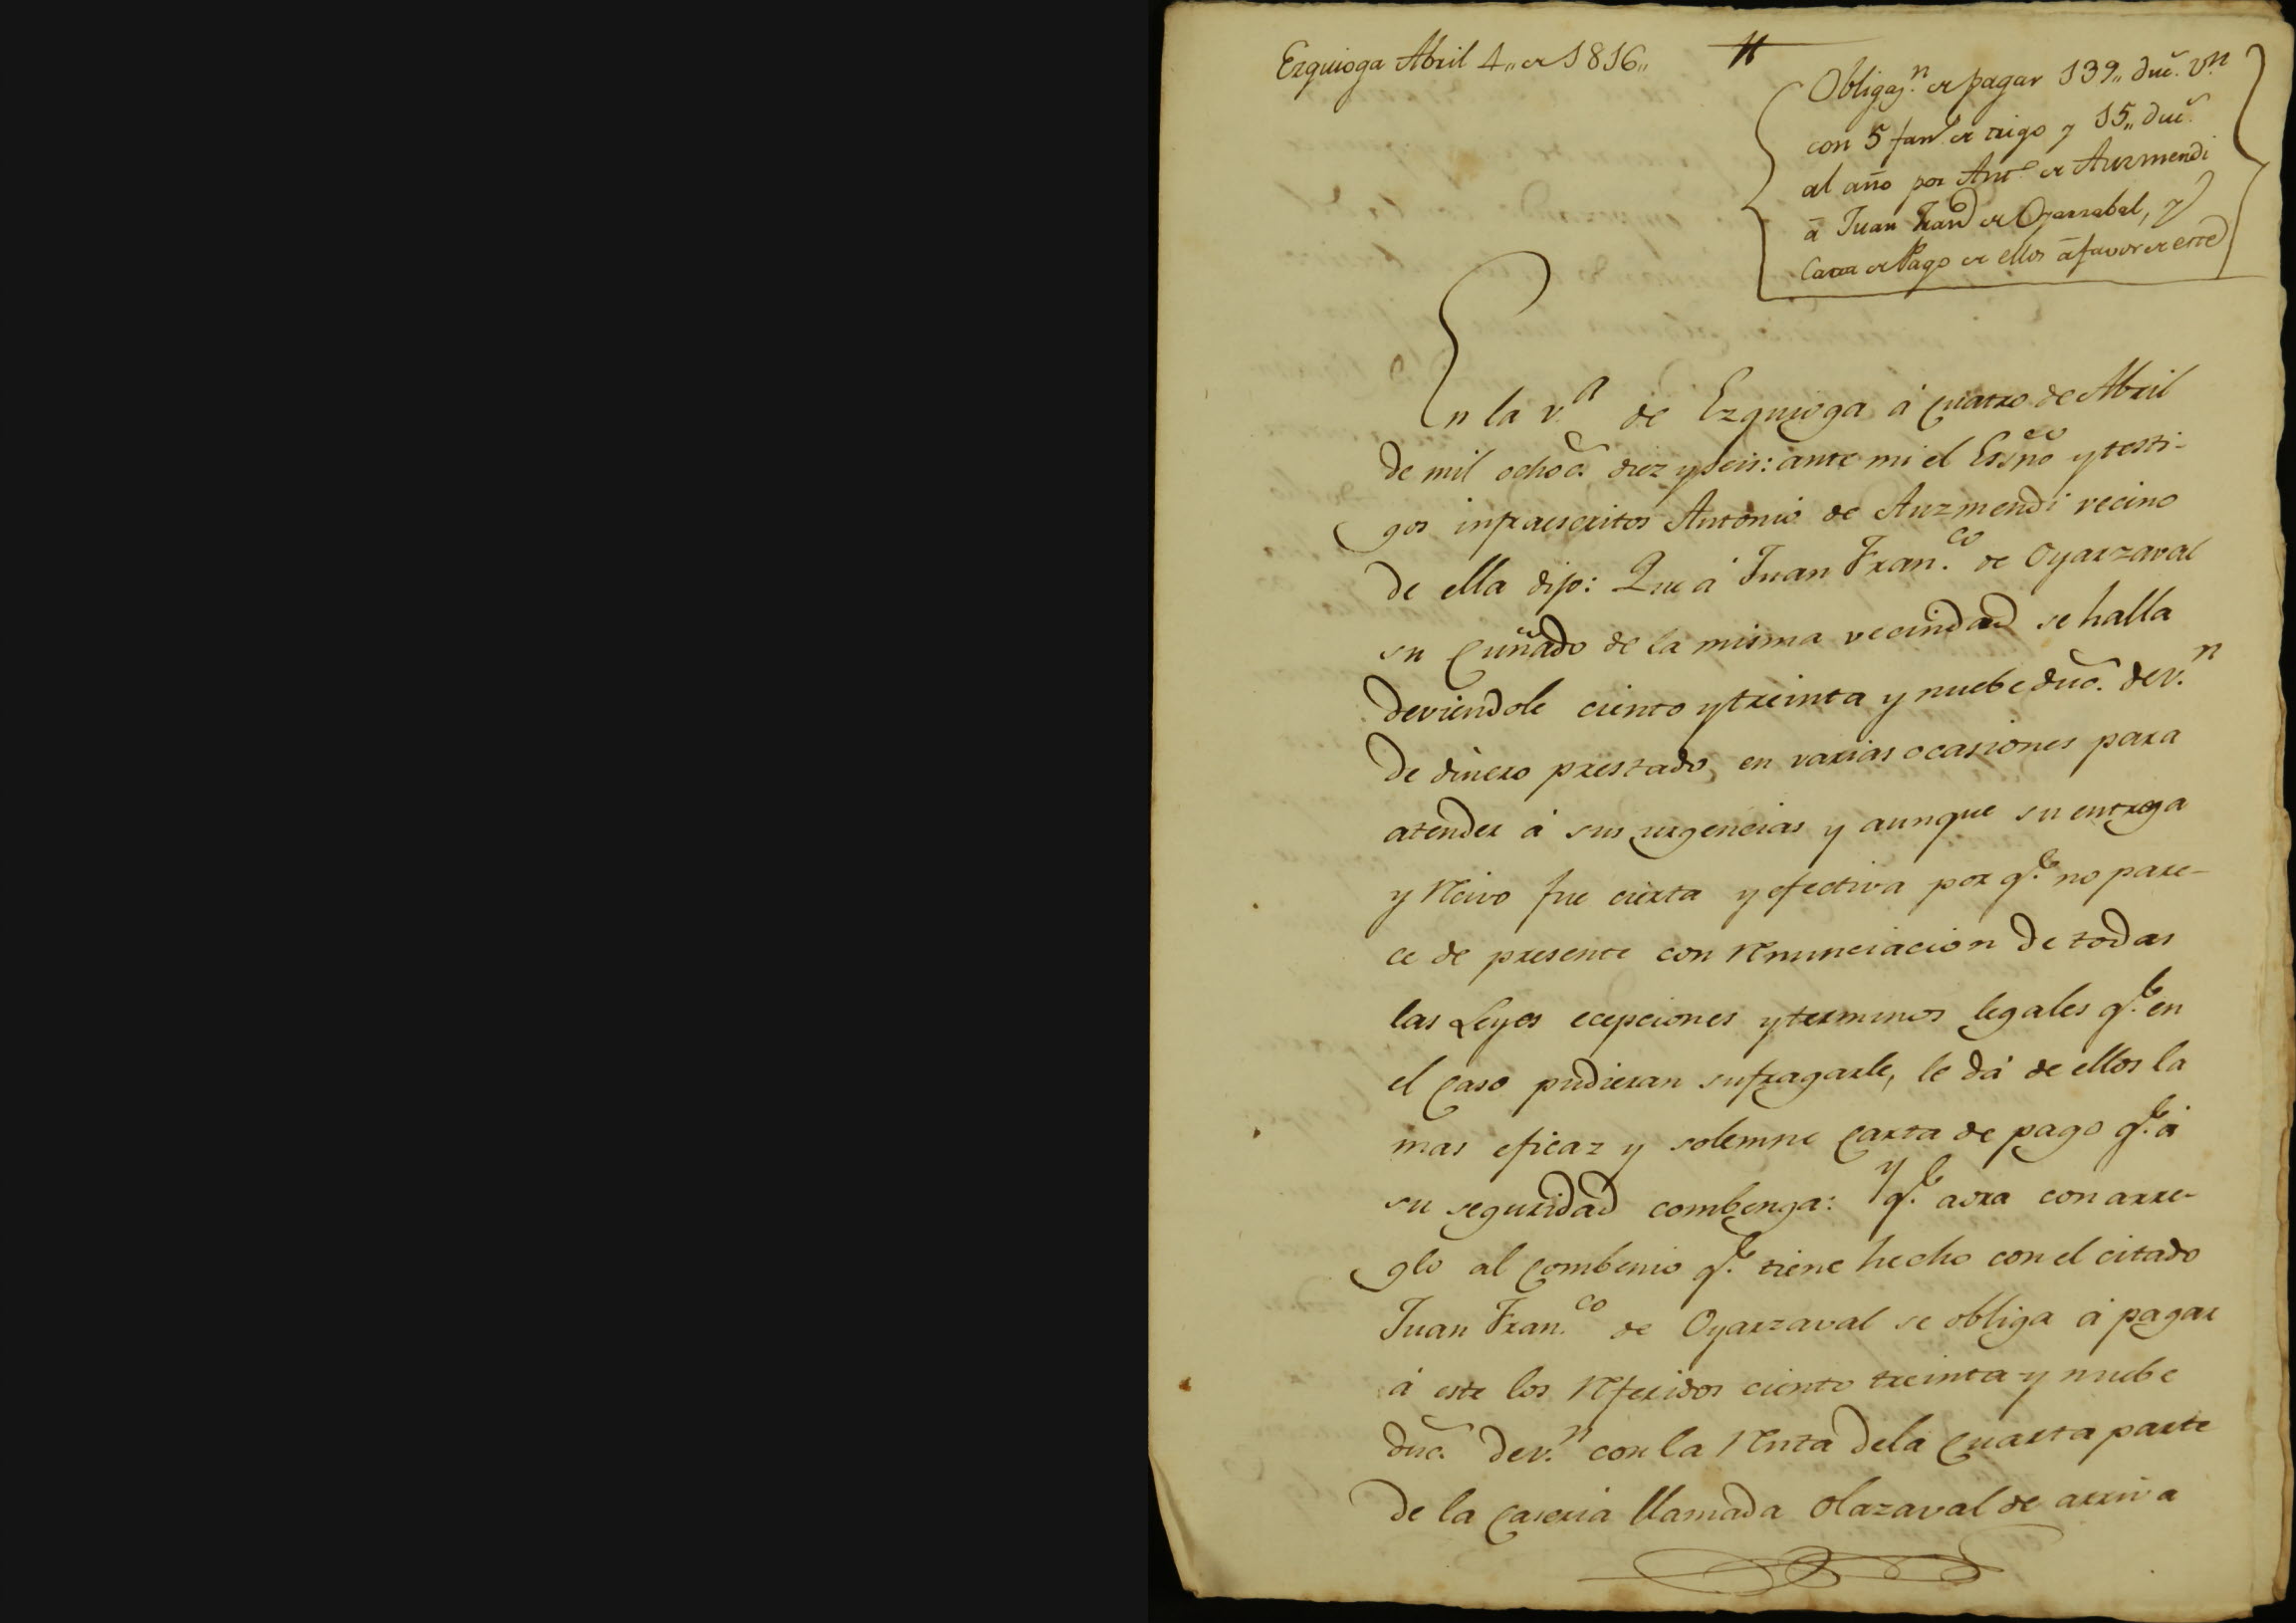 Ezquioga Abril 4,, de 1816,,
Obligaz.n de pagar 139,, duc.s v.n
con 5 fan.s de trigo y 15,, duc.s
al año por Ant.o de Auzmendi
à Juan Fran.co de Oyarzabal, y
Carta de Pago de ellos à favor de este
En la v.a de Ezquioga á quatro de Abril
de mil ochoc.s diez y seis: ante mi el Ess.no y testi-
gos infraescritos Antonio de Auzmendi vecino
de ella dijo: Que á Juan Fran.co de Oyarzaval
su Cuñado de la misma vecindad se halla
deviendole ciento y treinta y nuebe duc.s de v.n
de dinero prestado, en varias ocasiones para
atender á sus urgencias y aunque su entrega
y recivo fue cierta y efectiva por q.e no pare-
ce de presente con renunciacion de todas
las Leyes ecepciones y terminos legales q.e en
el caso pudieran sufragarle, le dá de ellos la
mas eficaz y solemne carta de pago q.e á
su seguridad combenga: y q.e aora con arre-
glo al combenio q.e tiene hecho con el citado
Juan Fran.co de Oyarzaval se obliga á pagar
á este los referidos ciento treinta y nuebe
duc.s de v.n con la renta de la quarta parte
de la caseria llamada Olazaval de arriva